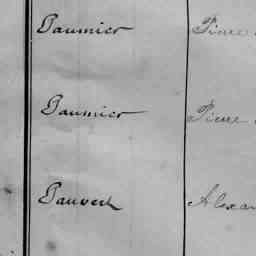 Paumier Pierre
Paumier Pierre
Pauvert Alexan